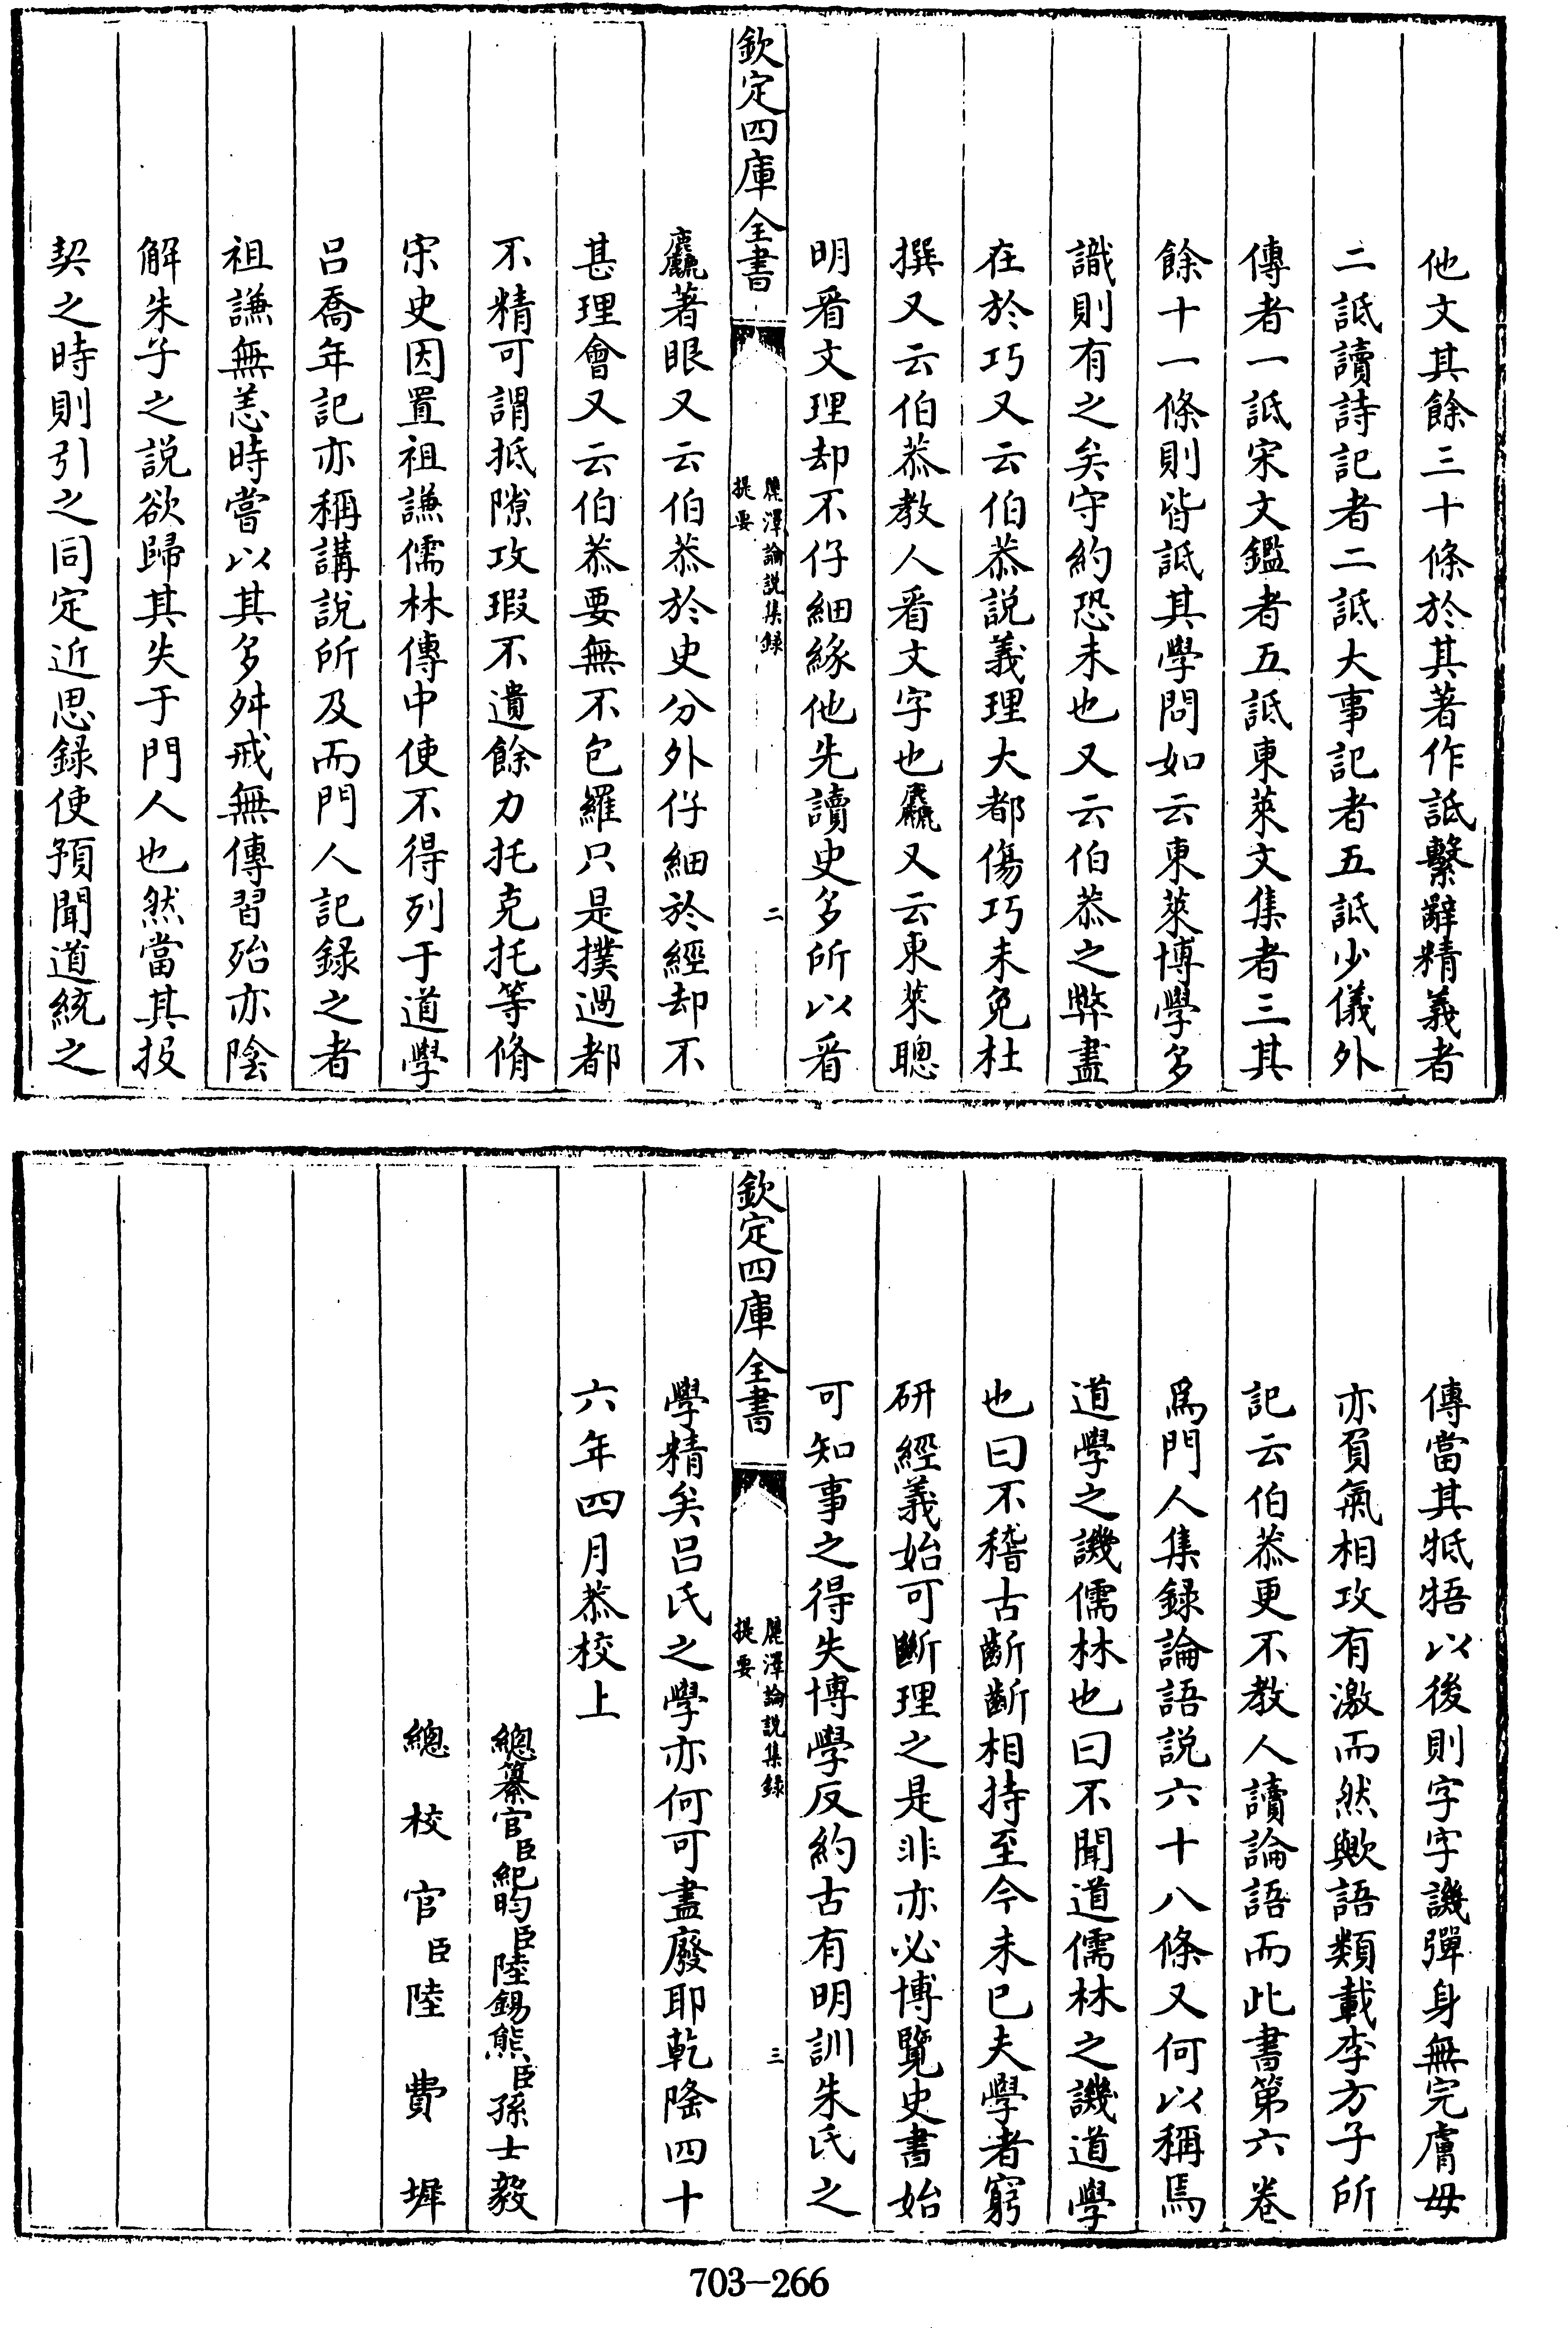 他文其餘三十條於其著作詆繫辭精義者
二詆讀詩記者二詆大事記者五詆少儀外
傳者一詆宋文鑑者五詆東萊文集者三其
餘十一條則皆詆其學問如云東萊博學多
識則有之矣守約恐未也又云伯恭之弊盡
在於巧又云伯恭説義理大都傷巧未免杜
撰又云伯恭教人㸔文字也麤又云東萊聰
明㸔文理却不仔細緣他先讀史多所以㸔
欽定四庫全書
麗澤論説集録
提要
二
麤著眼又云伯恭於史分外仔細於經却不
甚理會又云伯恭要無不包羅只是撲過都
不精可謂抵隙攻瑕不遺餘力托克托等脩
宋史因置祖謙儒林傳中使不得列于道學
吕喬年記亦稱講説所及而門人記録之者
祖謙無恙時嘗以其多舛戒無傳習殆亦陰
解朱子之説欲歸其失于門人也然當其投
契之時則引之同定近思録使預聞道統之
傳當其牴牾以後則字字譏彈身無完膚毋
亦負氣相攻有激而然歟語類載李方子所
記云伯恭更不教人讀論語而此書第六卷
爲門人集録論語説六十八條又何以稱焉
道學之譏儒林也曰不聞道儒林之譏道學
也曰不稽古齗齗相持至今未已夫學者窮
研經義始可斷理之是非亦必博覽史書始
可知事之得失博學反約古有明訓朱氏之
欽定四庫全書
麗澤論説集録
提要
三
學精矣吕氏之學亦何可盡廢耶乾隆四十
六年四月恭校上
總纂官臣紀昀臣陸錫熊臣孫士毅
總校官臣陸費墀
703-266